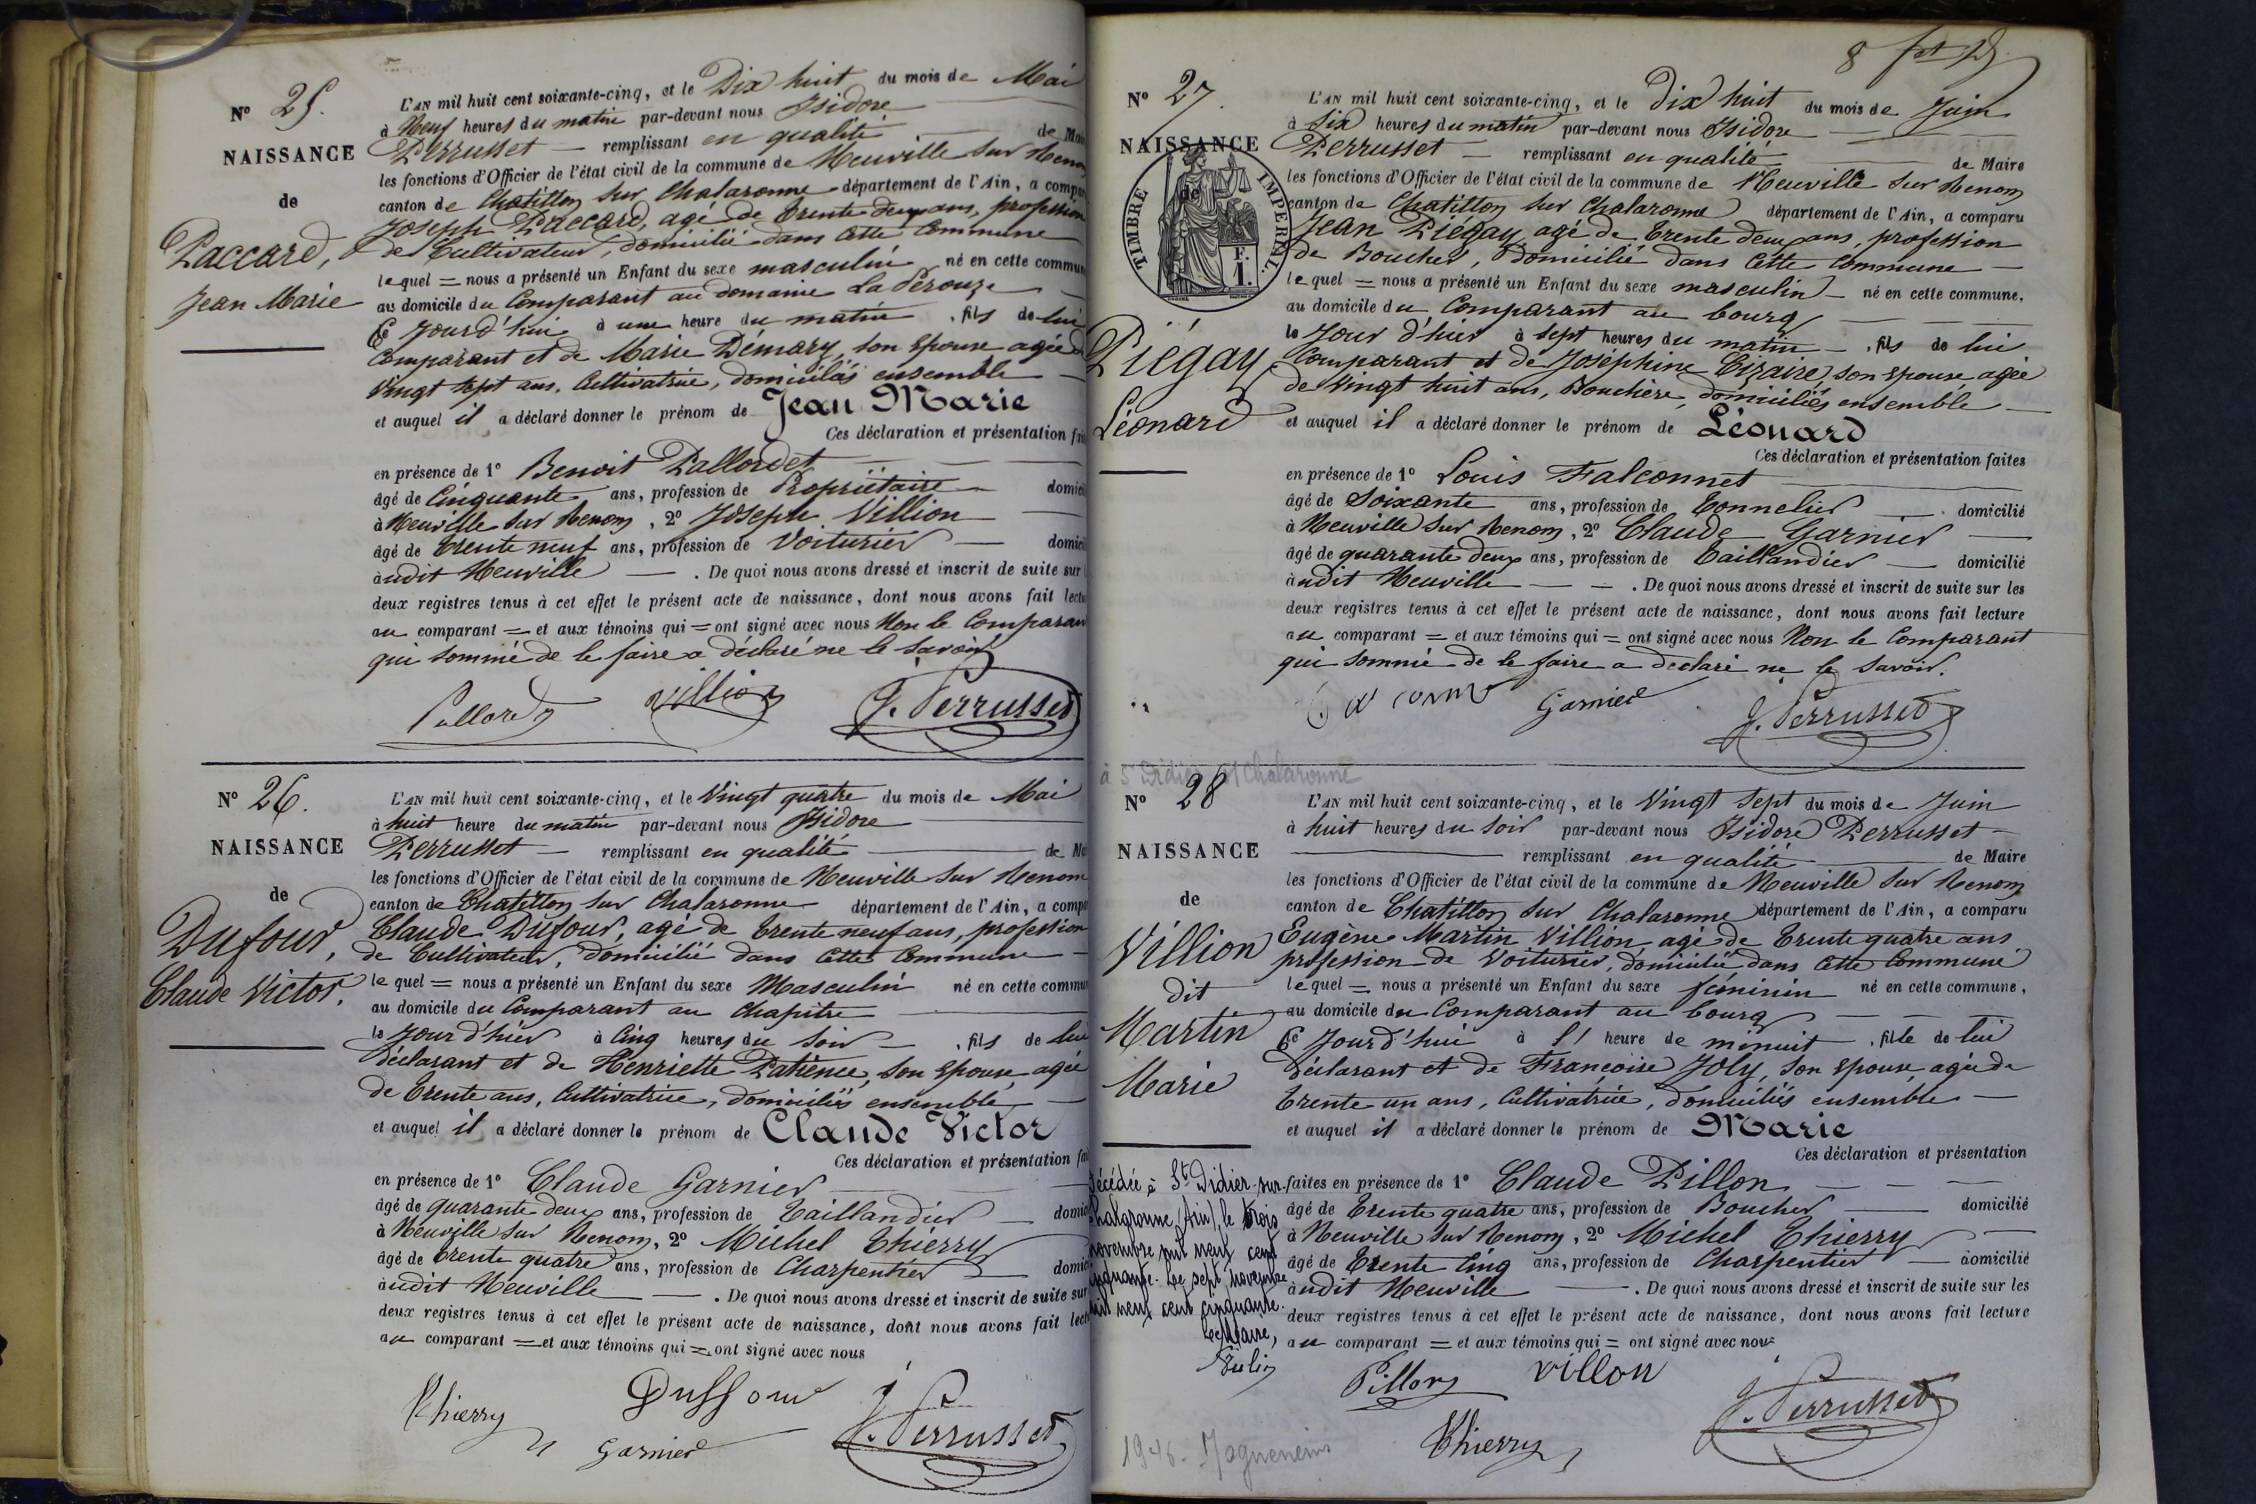 Nº 25.
NAISSANCE
de
Paccard,
Jean Marie
L'AN mil huit cent soixante-cinq, et le Dix huit du mois de Mai
à Neuf heures du matin par-devant nous Isidore
Perrusset — remplissant en qualité de Mai
les fonctions d'Officier de l'état civil de la commune de Neuville sur Renon
canton de Chatillon sur Chalaronne département de l'Ain, a compa
Joseph Paccard, agé de trente deux ans, profession
de Cultivateur, domicilié dans cette Commune
lequel = nous a présenté un Enfant du sexe masculin né en cette commun
au domicile du Comparant au domaine La Pérouze
Ce Jourd'hui à une heure du matin, fils de lui
Comparant et de Marie Démary, son épouse agée de
Vingt sept ans, Cultivatrice, domiciliés ensemble
et auquel il a déclaré donner le prénom de Jean Marie
Ces déclaration et présentation fai
en présence de 1º Benoit Pallordet
âgé de Cinquante ans, profession de Propriétaire domici
à Neuville sur Renon, 2º Joseph Villion
âgé de trente neuf ans, profession de Voiturier — domici
àudit Neuville — . De quoi nous avons dressé et inscrit de suite sur
deux registres tenus à cet effet le présent acte de naissance, dont nous avons fait lectu
au comparant = et aux témoins qui = ont signé avec nous Non le Comparan
qui sommé de le faire a déclaré ne le savoir
Villion J. Perrusset
Nº 26.
NAISSANCE
de
Dufour,
Claude Victor.
L'AN mil huit cent soixante-cinq, et le Vingt quatre du mois de Mai
à huit heure du matin par-devant nous Isidore
Perrusset — remplissant en qualité de Ma
les fonctions d'Officier de l'état civil de la commune de Neuville sur Renon
canton de Chatillon sur Chalaronne département de l'Ain, a compa
Claude Dufour, agé de trente neuf ans, profession
de Cultivateur, domicilié dans cette Commune —
lequel = nous a présenté un Enfant du sexe Masculin né en cette commu
au domicile du Comparant au Chapitre
le Jour d'hier à Cinq heures du soir — , fils de lui
déclarant et de Henriette Patience, son épouse, agée
de trente ans, Cultivatrice, domiciliés ensemble
et auquel il a déclaré donner le prénom de Claude Victor
Ces déclaration et présentation fai
en présence de 1º Claude Garnier
âgé de quarante deux ans, profession de Taillandier — domic
à Neuville sur Renon, 2º Michel Thierry
âgé de trente quatre ans, profession de Charpentier domic
àudit Neuville — . De quoi nous avons dressé et inscrit de suite sur
deux registres tenus à cet effet le présent acte de naissance, dont nous avons fait lect
au comparant = et aux témoins qui = ont signé avec nous
Thierry Duffour J. Perrusset
Garnier
8
Nº 27.
NAISSANCE
de
TIMBRE IMPERIAL.
1 F.
Piégay
Léonard
L'AN mil huit cent soixante-cinq, et le Dix huit du mois de Juin
à Six heures du matin par-devant nous Isidore —
Perrusset — remplissant en qualité de Maire
les fonctions d'Officier de l'état civil de la commune de Neuville sur Renon
canton de Chatillon sur Chalaronne département de l'Ain, a comparu
Jean Piégay, agé de trente deux ans, profession
de Boucher, domicilié dans cette Commune —
lequel = nous a présenté un Enfant du sexe masculin — né en cette commune,
au domicile du Comparant au bourg
le Jour d'hier à sept heures du matin — , fils de lui
Comparant et de Joséphine Cizaire, son épouse agée
de vingt huit ans, Bouchère, domiciliés ensemble —
et auquel il a déclaré donner le prénom de Léonard
Ces déclaration et présentation faites
en présence de 1º Louis Falconnet
âgé de Soixante ans, profession de Tonnelier — domicilié
à Neuville sur Renon, 2º Claude Garnier —
âgé de quarante deux ans, profession de Taillandier — domicilié
àudit Neuville — . De quoi nous avons dressé et inscrit de suite sur les
deux registres tenus à cet effet le présent acte de naissance, dont nous avons fait lecture
au comparant = et aux témoins qui = ont signé avec nous Non le Comparant
qui sommé de le faire a déclaré ne le savoir.
Garnier J. Perrusset
à St Didier s/ Chalaronne
Nº 28
NAISSANCE
de
Villion
dit
Martin
Marie
L'AN mil huit cent soixante-cinq, et le Vingt sept du mois de Juin
à huit heures du soir par-devant nous Isidore Perrusset —
remplissant en qualité de Maire
les fonctions d'Officier de l'état civil de la commune de Neuville sur Renon
canton de Chatillon sur Chalaronne département de l'Ain, a comparu
Eugène Martin Villion, agé de trente quatre ans
profession de Voiturier, domicilié dans cette Commune
lequel = nous a présenté un Enfant du sexe féminin né en cette commune,
au domicile du Comparant au bourg
Ce Jourd'hui à l' heure de minuit, fille de lui
Déclarant et de Françoise Joly, son épouse, agée de
trente un ans, Cultivatrice, domiciliés ensemble —
et auquel il a déclaré donner le prénom de Marie
Ces déclaration et présentation
faites en présence de 1º Claude Pillon
âgé de trente quatre ans, profession de Boucher — domicilié
à Neuville sur Renon, 2º Michel Thierry
âgé de trente Cinq ans, profession de Charpentier — domicilié
àudit Neuville — . De quoi nous avons dressé et inscrit de suite sur les
deux registres tenus à cet effet le présent acte de naissance, dont nous avons fait lecture
au comparant = et aux témoins qui = ont signé avec nous
Décédée à St Didier-sur-
Chalaronne (Ain), le trois
novembre mil neuf cent
cinquante. Le sept novembre
mil neuf cent cinquante.
Le Maire,
Pillon Villon J. Perrusset
Thierry
1946 -